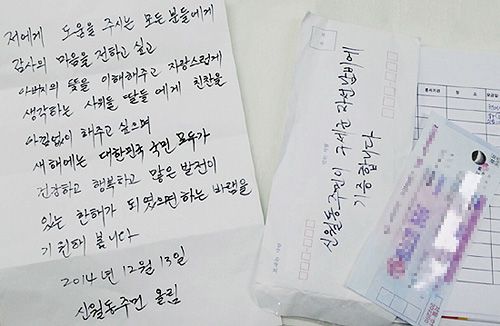 저에게 도움을 주시는 모든 분들에게
감사의 마음을 전하고 싶고
아버지의 뜻을 이해해주고 자랑스럽게
생각하는 사위들 딸들 에게 친찬을
아낌없이 해주고 싶으며
새해에는 대한민국 국민 모두가
건강하고 행복하고 많은 발전이
있는 한해가 되였으면 하는 바램을
기원해 봅니다
2014년 12월 13일
신월동주민 올림
신월동주민이 구세군 자선냄비에
기증합니다